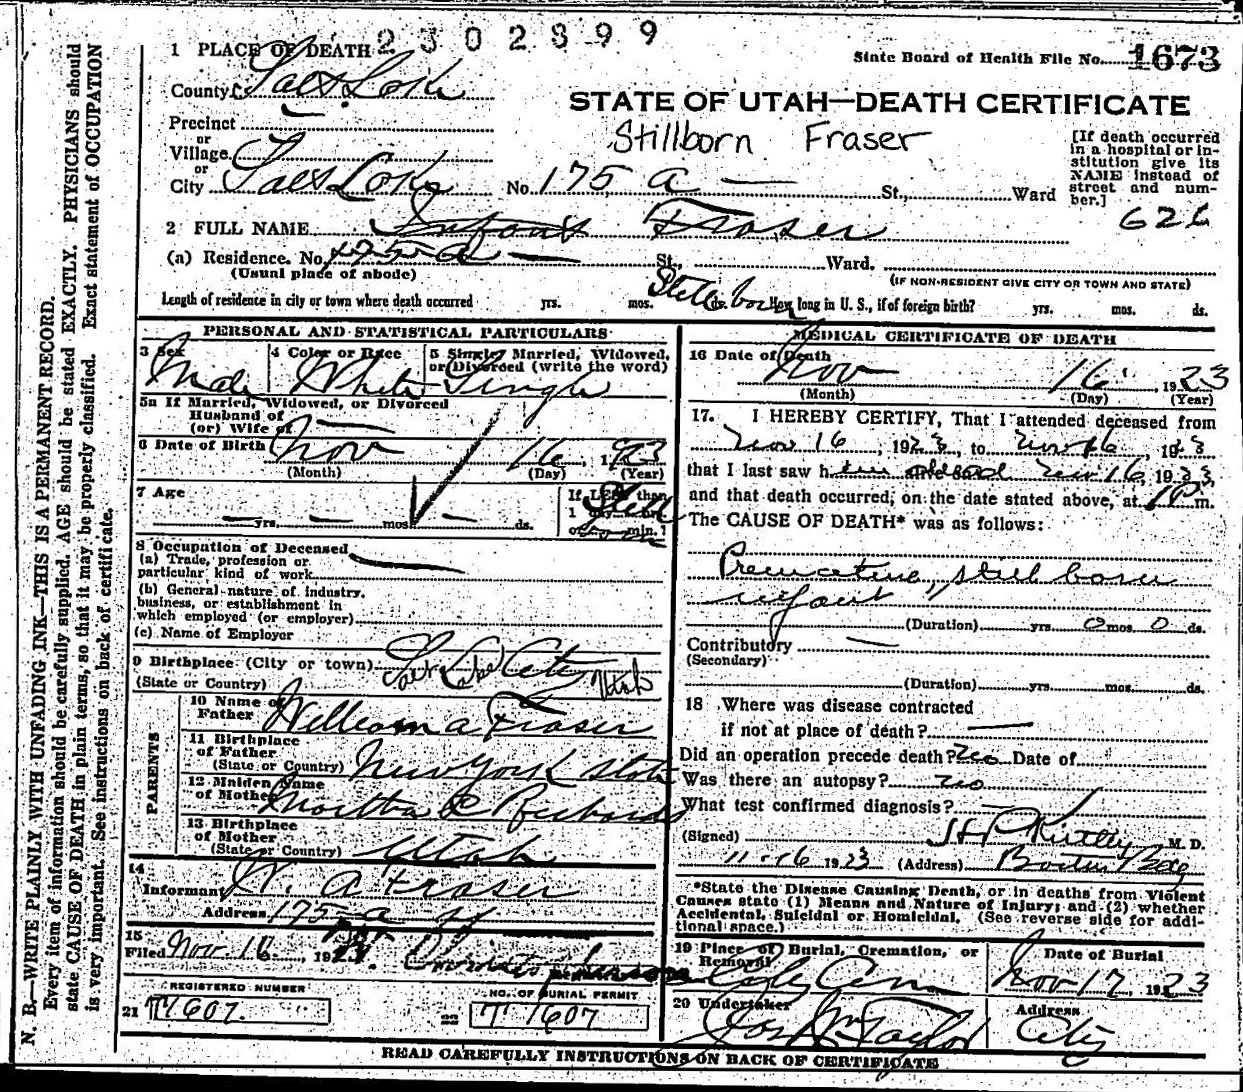 2302399
1 PLACE OF DEATH
State Board of Health File No. 1673
County Salt Lake
STATE OF UTAH—DEATH CERTIFICATE
Precinct
Stillborn Fraser
or
Village
or
City Salt Lake No. 175 A — St., Ward
[If death occurred
in a hospital or in-
stitution give its
NAME instead of
street and num-
ber.]
626
2 FULL NAME Infant Fraser
(a) Residence. No. 175 A — St., Ward.
(Usual place of abode)
(IF NON-RESIDENT GIVE CITY OR TOWN AND STATE)
Length of residence in city or town where death occurred yrs. mos. Stillborn ds. How long in U. S., if of foreign birth? yrs. mos. ds.
PERSONAL AND STATISTICAL PARTICULARS
3 Sex Male
4 Color or Race White
5 Single, Married, Widowed,
or Divorced (write the word)
Single
5a If Married, Widowed, or Divorced
Husband of
(or) Wife of —
6 Date of Birth Nov 16, 1923
(Month) (Day) (Year)
7 Age
— yrs. — mos. — ds.
If LESS than
1 day hrs.
or min.?
Still born
8 Occupation of Deceased
(a) Trade, profession or
particular kind of work
(b) General nature of industry,
business, or establishment in
which employed (or employer)
(c) Name of Employer
9 Birthplace (City or town) Salt Lake City Utah
(State or Country)
PARENTS
10 Name of
Father William A Fraser
11 Birthplace
of Father
(State or Country) New York State
12 Maiden Name
of Mother Martha E Richards
13 Birthplace
of Mother
(State or Country) Utah
14
Informant W. A Fraser
Address 175 A St
15
Filed Nov. 16, 1923
REGISTERED NUMBER
21 T 1607.
NO. OF BURIAL PERMIT
22 T 1607
MEDICAL CERTIFICATE OF DEATH
16 Date of Death Nov 16, 1923
(Month) (Day) (Year)
17. I HEREBY CERTIFY, That I attended deceased from
Nov 16, 1923, to Nov 16, 1923
that I last saw h Nov 16, 1923,
and that death occurred, on the date stated above, at 1 P m.
The CAUSE OF DEATH* was as follows:
Premature, still born
infant
(Duration) yrs 0 mos 0 ds.
Contributory —
(Secondary)
(Duration) yrs mos. ds.
18 Where was disease contracted
if not at place of death? —
Did an operation precede death? No Date of
Was there an autopsy? no
What test confirmed diagnosis? —
(Signed) M. D.
11-16 1923 (Address) Boston Bldg
*State the Disease Causing Death, or in deaths from Violent
Causes state (1) Means and Nature of Injury; and (2) whether
Accidental, Suicidal or Homicidal. (See reverse side for addi-
tional space.)
19 Place of Burial, Cremation, or
Removal City Cem
Date of Burial
Nov 17, 1923
20 Undertaker
Jos Wm Taylor
Address
City
READ CAREFULLY INSTRUCTIONS ON BACK OF CERTIFICATE
N. B.—WRITE PLAINLY WITH UNFADING INK—THIS IS A PERMANENT RECORD.
Every item of information should be carefully supplied. AGE should be stated EXACTLY. PHYSICIANS should
state CAUSE OF DEATH in plain terms, so that it may be properly classified. Exact statement of OCCUPATION
is very important. See instructions on back of certificate.